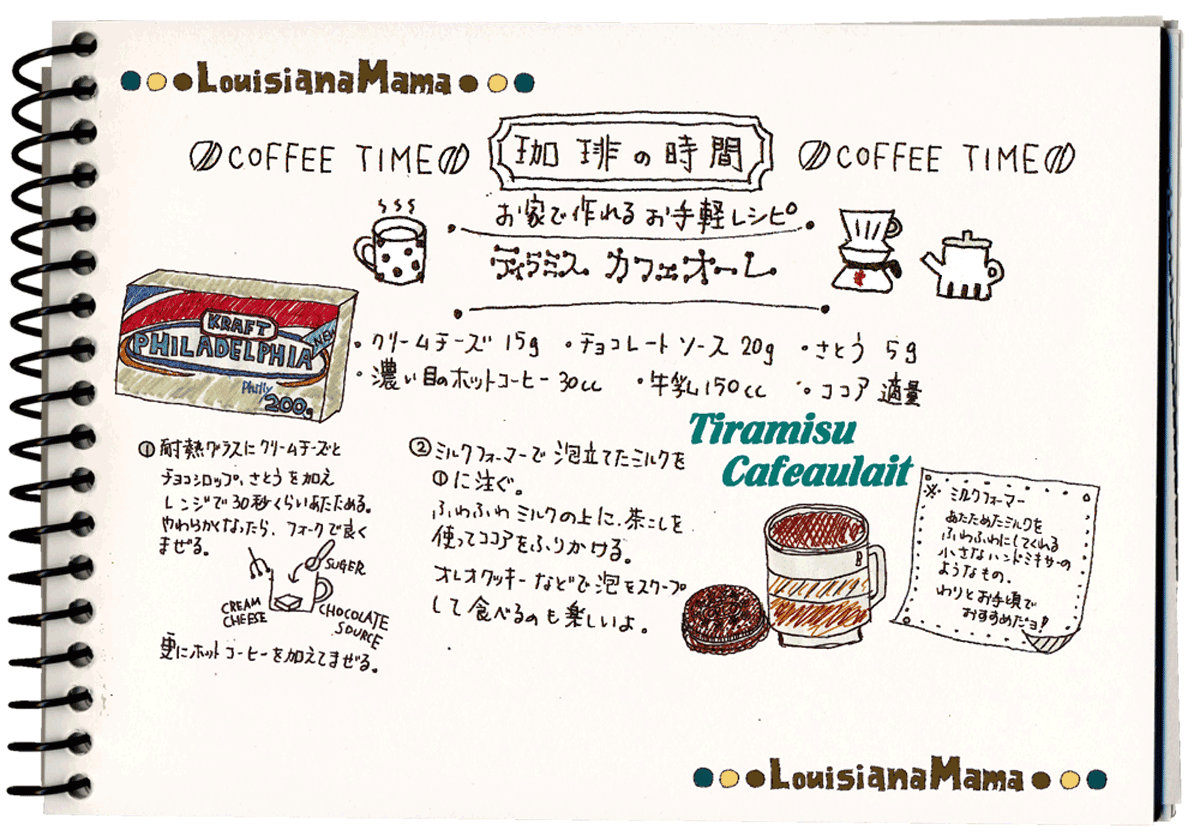 LouisianaMama
COFFEE TIME 珈琲の時間 COFFEE TIME
お家で作れるお手軽レシピ
ティラミス カフェオーレ
KRAFT
PHILADELPHIA
NEW
Philly
200g
・クリームチーズ 15g ・チョコレートソース 20g ・さとう 5g
・濃い目のホットコーヒー 30cc ・牛乳150cc ・ココア 適量
①耐熱グラスにクリームチーズと
チョコシロップ、さとうを加え
レンジで30秒くらいあたためる。
やわらかくなったら、フォークで良く
まぜる。
SUGER
CREAM
CHEESE
CHOCOLATE
SOURCE
更にホットコーヒーを加えてまぜる。
②ミルクフォーマーで泡立てたミルクを
①に注ぐ。
ふわふわミルクの上に、茶こしを
使ってココアをふりかける。
オレオクッキーなどで泡をスクープ
して食べるのも楽しいよ。
Tiramisu
Cafeaulait
※ ミルクフォーマー
あたためたミルクを
ふわふわにしてくれる
小さなハンドミキサーの
ようなもの。
わりとお手頃で
おすすめだョ!
LouisianaMama